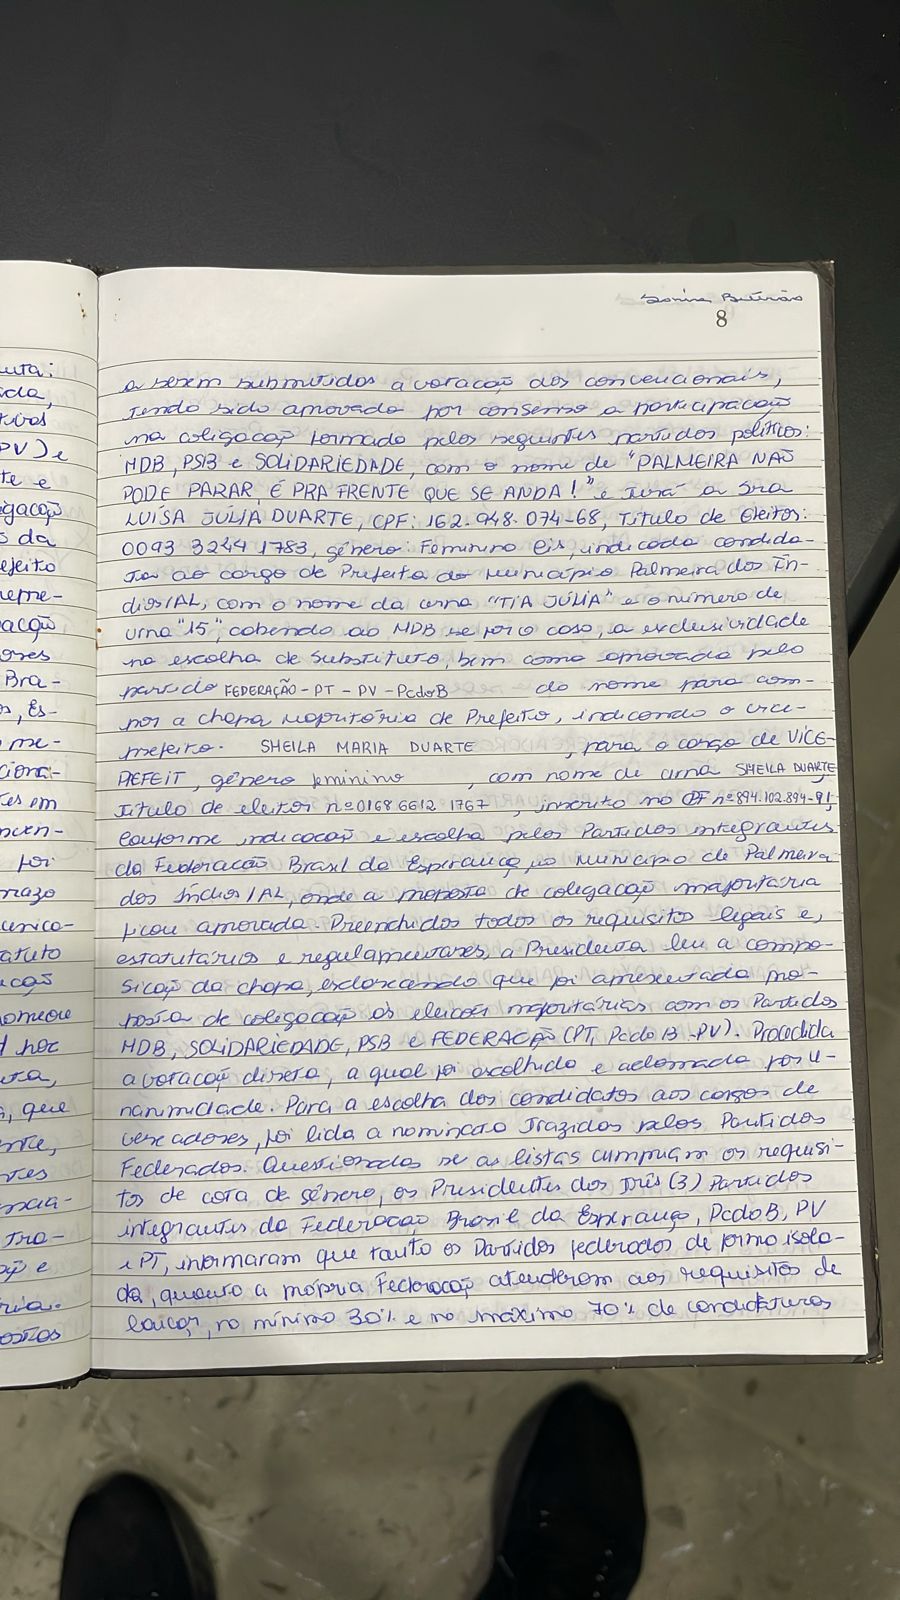 8
a serem submetidos a votação dos convencionais,
tendo sido aprovado por consenso a participação
na coligação formada pelos seguintes partidos políticos:
MDB, PSB e SOLIDARIEDADE, com o nome de "PALMEIRA NÃO
PODE PARAR, É PRA FRENTE QUE SE ANDA!" e terá a Sra
LUÍSA JÚLIA DUARTE, CPF: 162.948.074-68, Título de Eleitor:
0093 3244 1783, gênero: Feminino Cis, indicada candida-
ta ao cargo de Prefeita do Município Palmeira dos Ín-
dios/AL, com o nome da urna "TIA JÚLIA" e o número de
urna "15", cabendo ao MDB se for o caso, a exclusividade
na escolha de substituto, bem como aprovada pelo
partido FEDERAÇÃO - PT - PV - PcdoB do nome para com-
por a chapa majoritária de Prefeito, indicando o vice-
prefeito. SHEILA MARIA DUARTE, para o cargo de VICE-
PREFEIT, gênero feminino, com nome de urna SHEILA DUARTE,
Título de eleitor nº 0168 6612 1767, inscrito no CPF nº 894.102.894-91,
conforme indicação e escolha pelos Partidos integrantes
da Federação Brasil da Esperança, no Município de Palmeira
dos Índios/AL, onde a proposta de coligação majoritária
ficou aprovada. Preenchidos todos os requisitos legais e,
estatutários e regulamentares, a Presidenta leu a compo-
sição da chapa, esclarecendo que foi apresentada pro-
posta de coligação às eleições majoritárias com os Partidos
MDB, SOLIDARIEDADE, PSB e FEDERAÇÃO (PT, PcdoB - PV). Procedida
a votação direta, a qual foi acolhida e aclamada por u-
nanimidade. Para a escolha dos candidatos aos cargos de
vereadores, foi lida a nominata trazidos pelos Partidos
Federados. Questionados se as listas cumpriam os requisi-
tos de cota de gênero, os Presidentes dos três (3) Partidos
integrantes da Federação Brasil da Esperança, PcdoB, PV
e PT, informaram que tanto os Partidos federados de forma isola-
da, quanto a própria Federação atenderam aos requisitos de
lançar, no mínimo 30% e no máximo 70% de candidaturas